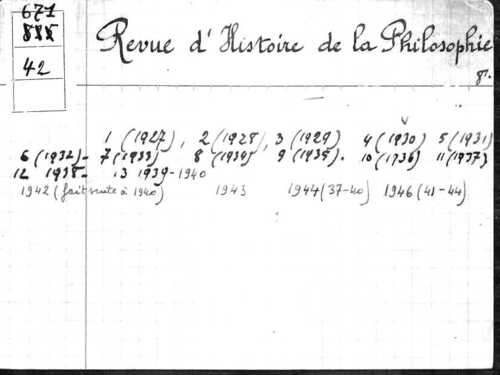 671
42
Revue d'Histoire de la Philosophie
8°.
1 (1927), 2 (1928), 3 (1929) 4 (1930) 5 (1931)
6 (1932)- 7 (1933) 8 (1934) 9 (1935). 10 (1936) 11 (1937)
12 1938- 13 1939-1940
1942 (fait suite à 1940) 1943 1944 (37-40) 1946 (41-44)